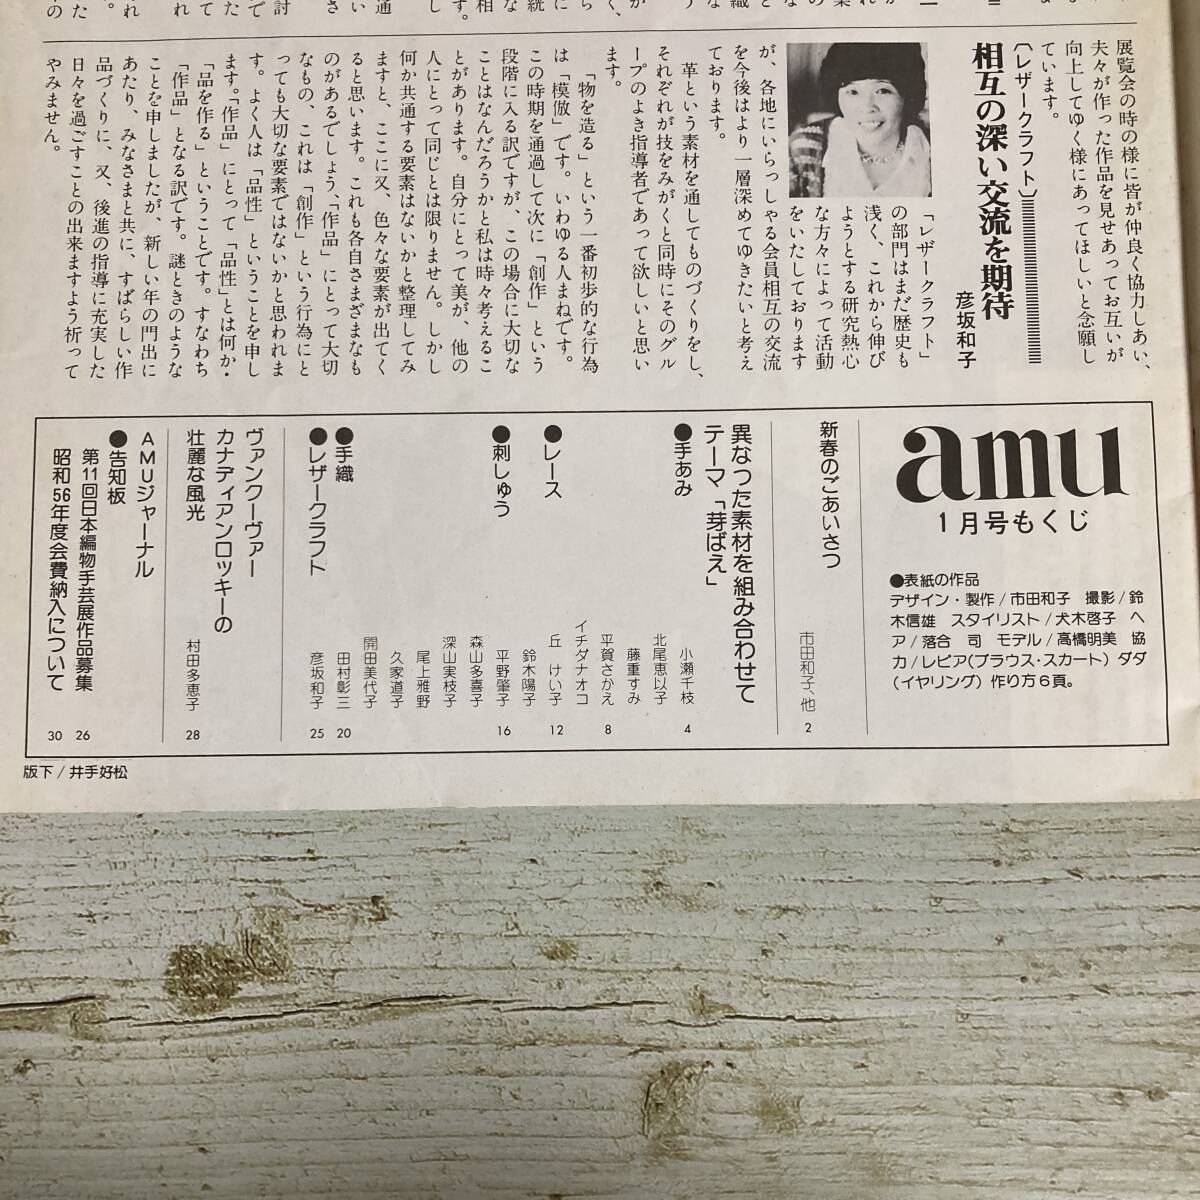 展覧会の時の様に皆が仲良く協力しあい、
夫々が作った作品を見せあってお互いが
向上してゆく様にあってほしいと念願し
ています。
〔レザークラフト〕
相互の深い交流を期待
彦坂和子
「レザークラフト」
の部門はまだ歴史も
浅く、これから伸び
ようとする研究熱心
な方々によって活動
をいたしております
が、各地にいらっしゃる会員相互の交流
を今後はより一層深めてゆきたいと考え
ております。
革という素材を通してものづくりをし、
それぞれが技をみがくと同時にそのグル
ープのよき指導者であって欲しいと思い
ます。
「物を造る」という一番初歩的な行為
は「模倣」です。いわゆる人まねです。
この時期を通過して次に「創作」という
段階に入る訳ですが、この場合に大切な
ことはなんだろうかと私は時々考えるこ
とがあります。自分にとって美が、他の
人にとって同じとは限りません。しかし
何か共通する要素はないかと整理してみ
ますと、ここに又、色々な要素が出てく
ると思います。これも各自さまざまなも
のがあるでしょう、「作品」にとって大切
なもの、これは「創作」という行為にと
っても大切な要素ではないかと思われま
す。よく人は「品性」ということを申し
ます。「作品」にとって「品性」とは何か・
「品を作る」ということです。すなわち
「作品」となる訳です。謎ときのような
ことを申しましたが、新しい年の門出に
あたり、みなさまと共に、すばらしい作
品づくりに、又、後進の指導に充実した
日々を過ごすことの出来ますよう祈って
やみません。
amu
1月号もくじ
●表紙の作品
デザイン・製作/市田和子 撮影/鈴
木信雄 スタイリスト/犬木啓子 ヘ
ア/落合 司 モデル/高橋明美 協
力/レビア(ブラウス・スカート) ダダ
(イヤリング) 作り方6頁。
新春のごあいさつ
市田和子、他
2
異なった素材を組み合わせて
テーマ「芽ばえ」
●手あみ
小瀬千枝
4
北尾恵以子
藤重すみ
平賀さかえ
8
イチダナオコ
●レース
丘 けい子
12
鈴木陽子
●刺しゅう
平野肇子
16
森山多喜子
深山実枝子
尾上雅野
久家道子
開田美代子
●手織
田村彰三
20
●レザークラフト
彦坂和子
25
ヴァンクーヴァー
カナディアンロッキーの
壮麗な風光
村田多恵子
28
AMUジャーナル
●告知板
第11回日本編物手芸展作品募集
26
昭和56年度会費納入について
30
版下/井手好松